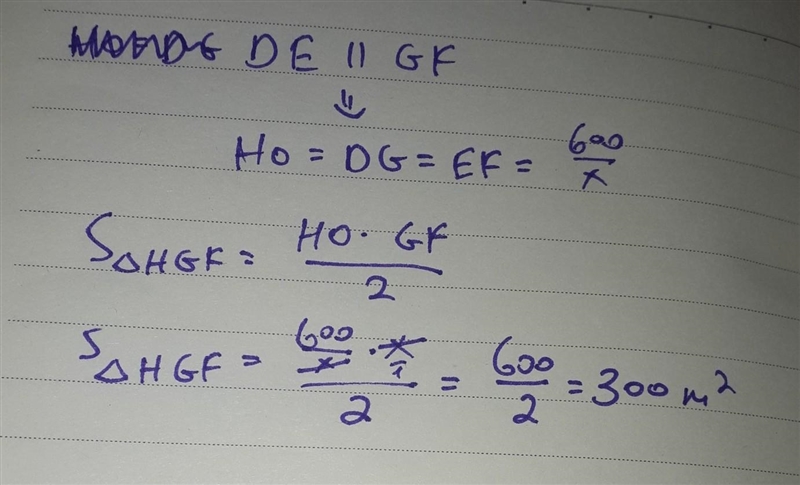 DE || GF
⇓
HO = DG = EF = 600/x
S△HGF = (HO · GF)/2
S△HGF = (600/x · x/1)/2 = 600/2 = 300 m²